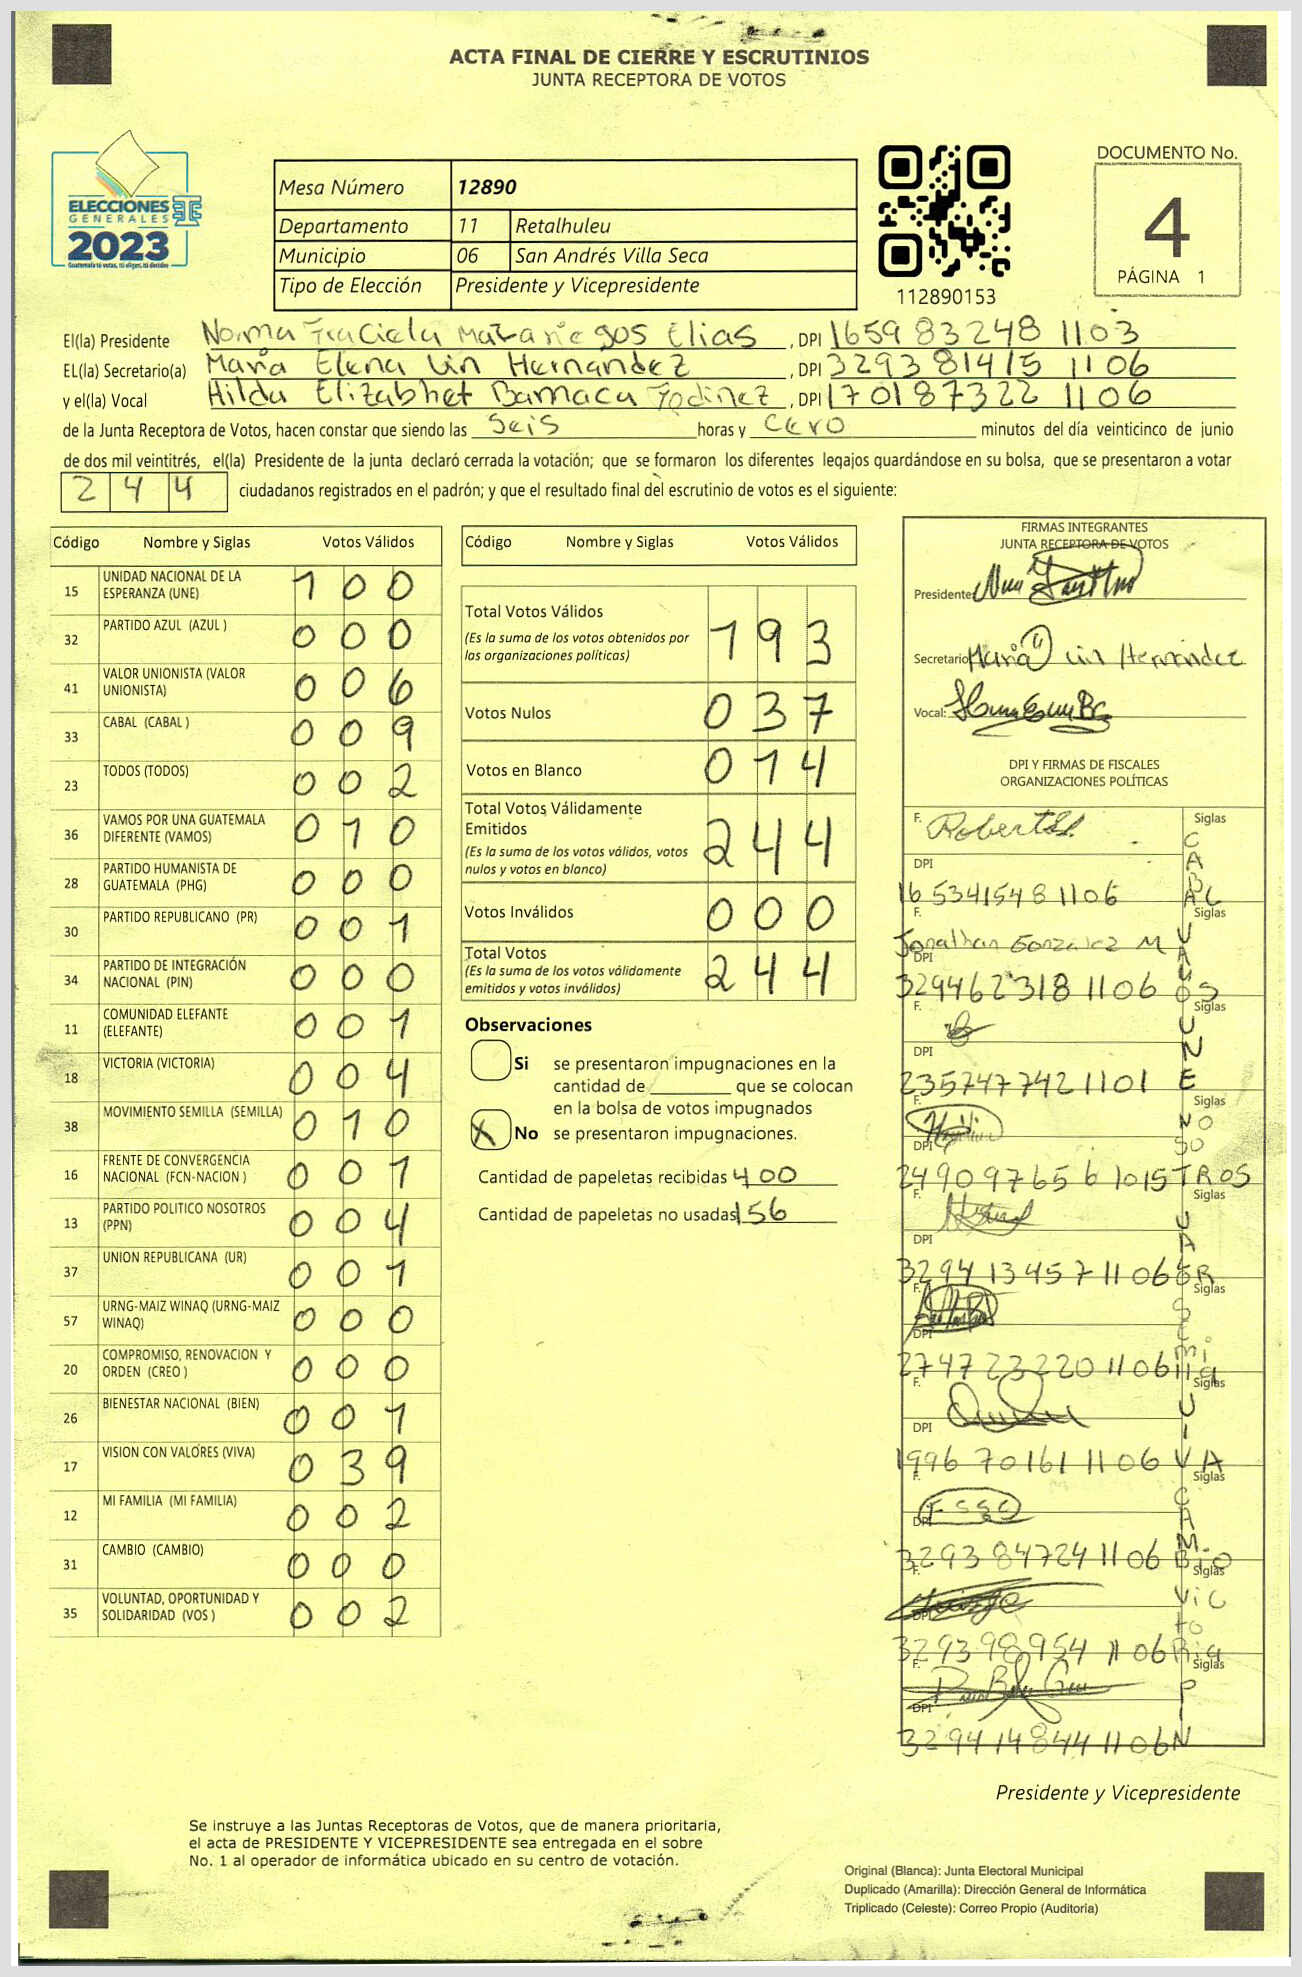 ACTA FINAL DE CIERRE Y ESCRUTINIOS
JUNTA RECEPTORA DE VOTOS
ELECCIONES
GENERALES
2023
Guatemala tú votas, tú eliges, tú decides
Mesa Número 12890
Departamento 11 Retalhuleu
Municipio 06 San Andrés Villa Seca
Tipo de Elección Presidente y Vicepresidente
112890153
DOCUMENTO No.
4
PÁGINA 1
El(la) Presidente Norma Graciela Mazariegos Elias, DPI 1659 83248 1103
EL(la) Secretario(a) María Elena Lin Hernandez, DPI 3293 81415 1106
y el(la) Vocal Hilda Elizabhet Barmaca Godinez, DPI 1701 87322 1106
de la Junta Receptora de Votos, hacen constar que siendo las seis horas y cero minutos del día veinticinco de junio
de dos mil veintitrés, el(la) Presidente de la junta declaró cerrada la votación; que se formaron los diferentes legajos guardándose en su bolsa, que se presentaron a votar
244 ciudadanos registrados en el padrón; y que el resultado final del escrutinio de votos es el siguiente:
Código Nombre y Siglas Votos Válidos
15 UNIDAD NACIONAL DE LA ESPERANZA (UNE) 100
32 PARTIDO AZUL (AZUL ) 000
41 VALOR UNIONISTA (VALOR UNIONISTA) 006
33 CABAL (CABAL ) 009
23 TODOS (TODOS) 002
36 VAMOS POR UNA GUATEMALA DIFERENTE (VAMOS) 010
28 PARTIDO HUMANISTA DE GUATEMALA (PHG) 000
30 PARTIDO REPUBLICANO (PR) 001
34 PARTIDO DE INTEGRACIÓN NACIONAL (PIN) 000
11 COMUNIDAD ELEFANTE (ELEFANTE) 001
18 VICTORIA (VICTORIA) 004
38 MOVIMIENTO SEMILLA (SEMILLA) 010
16 FRENTE DE CONVERGENCIA NACIONAL (FCN-NACION ) 001
13 PARTIDO POLITICO NOSOTROS (PPN) 004
37 UNION REPUBLICANA (UR) 001
57 URNG-MAIZ WINAQ (URNG-MAIZ WINAQ) 000
20 COMPROMISO, RENOVACION Y ORDEN (CREO ) 000
26 BIENESTAR NACIONAL (BIEN) 001
17 VISION CON VALORES (VIVA) 039
12 MI FAMILIA (MI FAMILIA) 002
31 CAMBIO (CAMBIO) 000
35 VOLUNTAD, OPORTUNIDAD Y SOLIDARIDAD (VOS ) 002
Código Nombre y Siglas Votos Válidos
Total Votos Válidos 193
(Es la suma de los votos obtenidos por
las organizaciones políticas)
Votos Nulos 037
Votos en Blanco 014
Total Votos Válidamente
Emitidos 244
(Es la suma de los votos válidos, votos
nulos y votos en blanco)
Votos Inválidos 000
Total Votos 244
(Es la suma de los votos válidamente
emitidos y votos inválidos)
Observaciones
Si se presentaron impugnaciones en la
cantidad de ________ que se colocan
en la bolsa de votos impugnados
X No se presentaron impugnaciones.
Cantidad de papeletas recibidas 400
Cantidad de papeletas no usadas 156
FIRMAS INTEGRANTES
JUNTA RECEPTORA DE VOTOS
Presidente:
Secretario: María Lin Hernández
Vocal:
DPI Y FIRMAS DE FISCALES
ORGANIZACIONES POLÍTICAS
F. Siglas CABAL
DPI 16 53415481106
F. Jonathan Gonzalez M Siglas VAMOS
DPI 3294462318 1106
F. Siglas UNE
DPI 2357477421101
F. Siglas NOSOTROS
DPI 249097656 1015
F. Siglas VALOR
DPI 3294 13457 1106
F. Siglas Semilla
DPI 2747232201106
F. Siglas VIVA
DPI 1996 70161 1106
F. Siglas CAMBIO
DPI 3293 84724 1106
F. Siglas Victoria
DPI 3293989541106
F. Siglas PIN
DPI 3294148441106
Presidente y Vicepresidente
Se instruye a las Juntas Receptoras de Votos, que de manera prioritaria,
el acta de PRESIDENTE Y VICEPRESIDENTE sea entregada en el sobre
No. 1 al operador de informática ubicado en su centro de votación.
Original (Blanca): Junta Electoral Municipal
Duplicado (Amarilla): Dirección General de Informática
Triplicado (Celeste): Correo Propio (Auditoría)